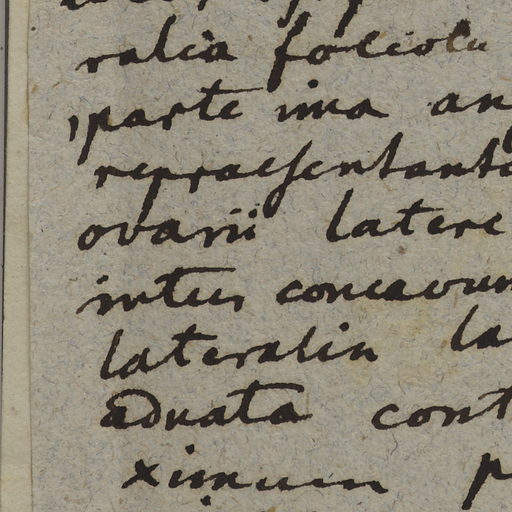 ralia foliola
parte ima an
repraesentant
ovarii latere
intus concavum
lateralia la
adnata cont
ximum p